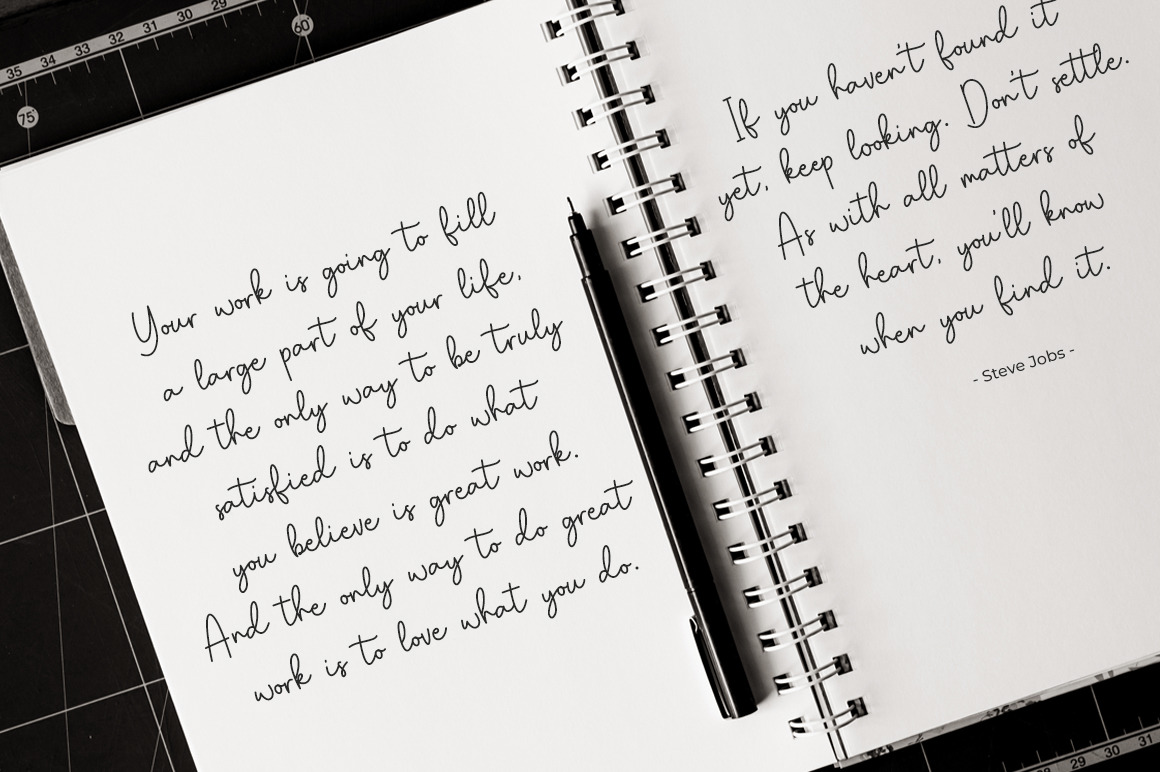 35 34 33 32 31 30 29
60°
75°
Your work is going to fill
a large part of your life,
and the only way to be truly
satisfied is to do what
you believe is great work.
And the only way to do great
work is to love what you do.
If you haven't found it
yet, keep looking. Don't settle.
As with all matters of
the heart, you'll know
when you find it.
- Steve Jobs -
29 30 31